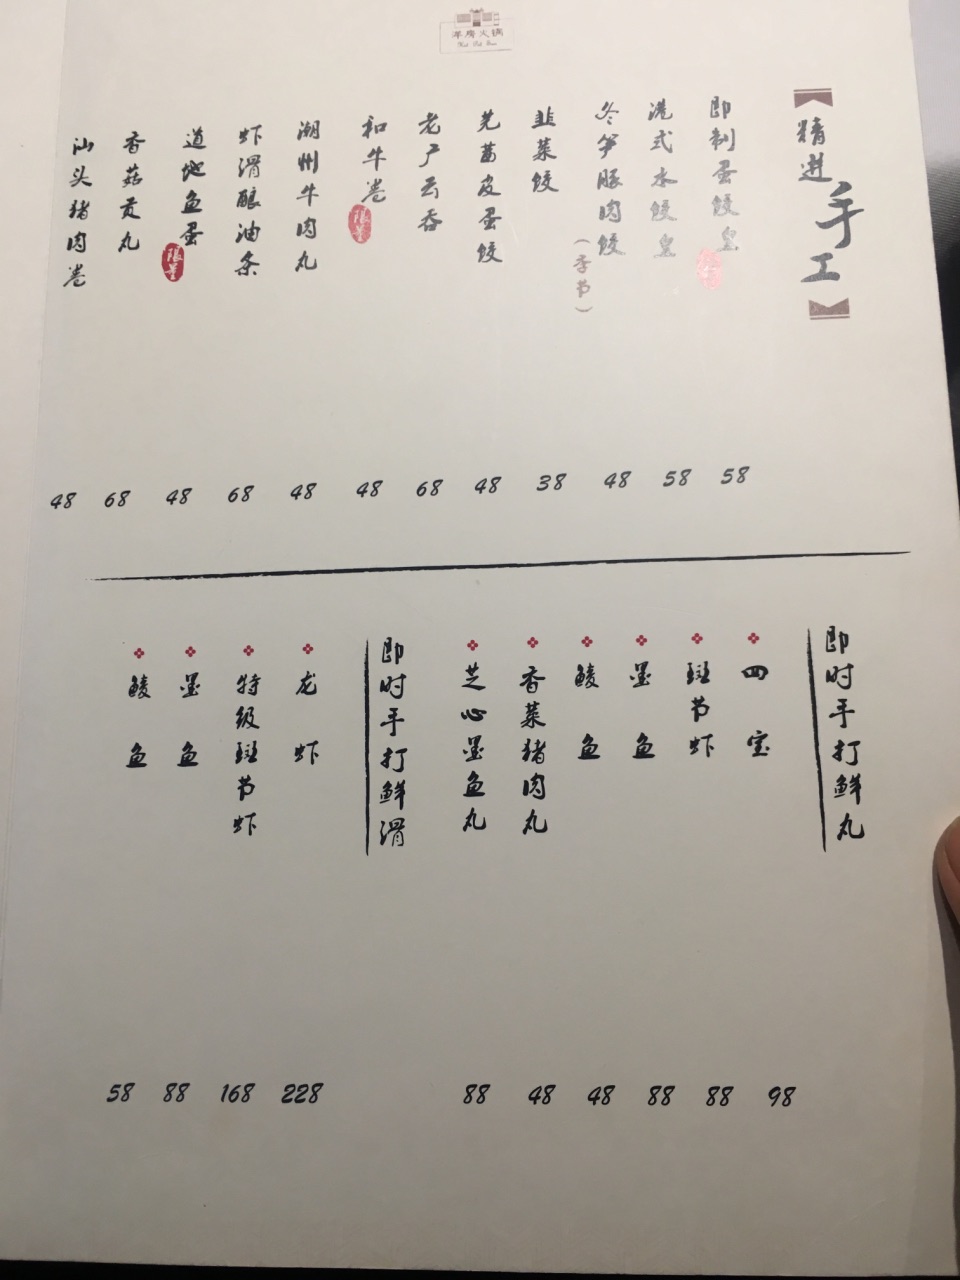 洋房火锅
Hot Pot
【精选手工】
即制蛋饺皇
港式水饺皇
冬笋豚肉饺
（季节）
韭菜饺
芫茜皮蛋饺
老广云吞
和牛卷
限量
潮州牛肉丸
虾滑酿油条
道地鱼蛋
限量
香菇贡丸
汕头猪肉卷
58
58
48
38
48
68
48
48
68
48
68
48
即时手打鲜丸
四宝
斑节虾
墨鱼
鲮鱼
香菜猪肉丸
芝心墨鱼丸
即时手打鲜滑
龙虾
特级斑节虾
墨鱼
鲮鱼
98
88
88
48
48
88
228
168
88
58